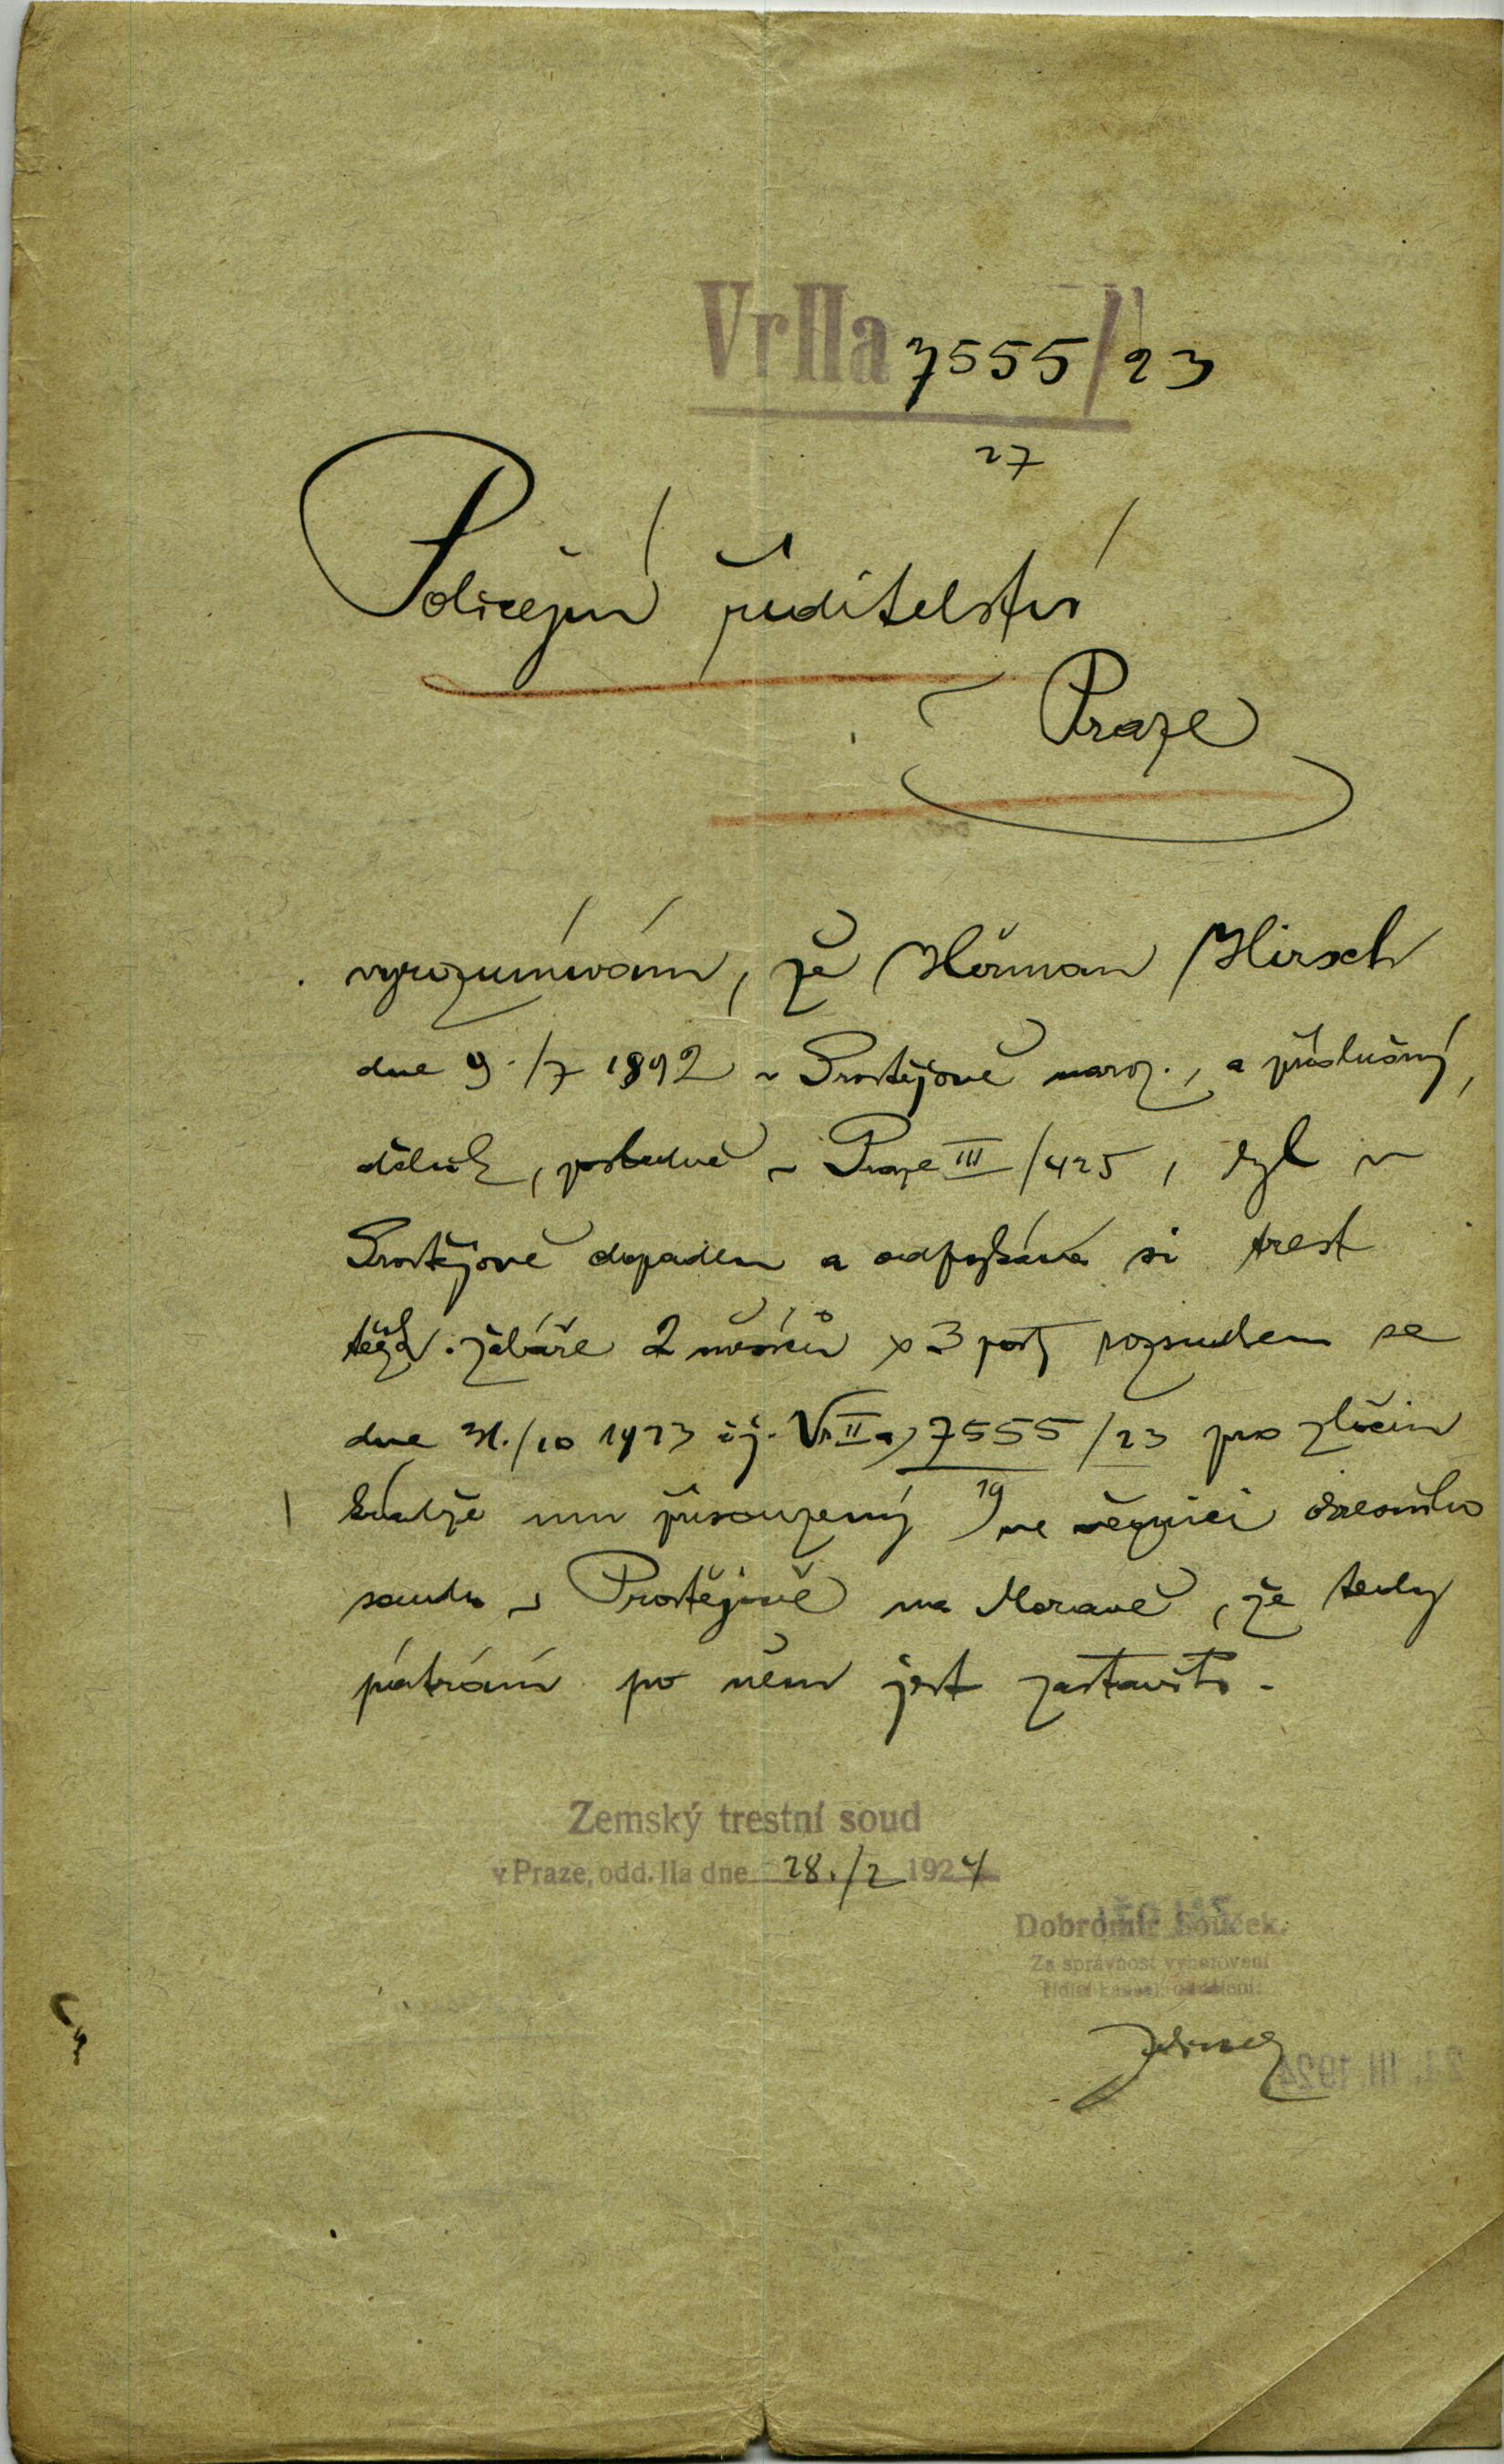 Vr IIa 7555/23
27
Policejní ředitelství
v Praze
vyrozumívám, že Heřman Hirsch
dne 9./7 1892 v Prostějově naroz., a příslušný,
dělník, posledně v Praze III/425, byl v
Prostějově dopaden a odpykává si trest
těžk. žaláře 2 měsíců x 3 posty rozsudkem ze
dne 31./10 1923 čj. Vr IIa 7555/23 pro zločin
19
krádeže mu přisouzený ve věznici okresního
soudu v Prostějově na Moravě, že tedy
pátrání po něm jest zastaviti.
Zemský trestní soud
v Praze, odd. IIa dne 28./2 1924
Dobromír Souček.
Za správnost vyhotovení
řídící kancel. oddělení:
21. III. 1924